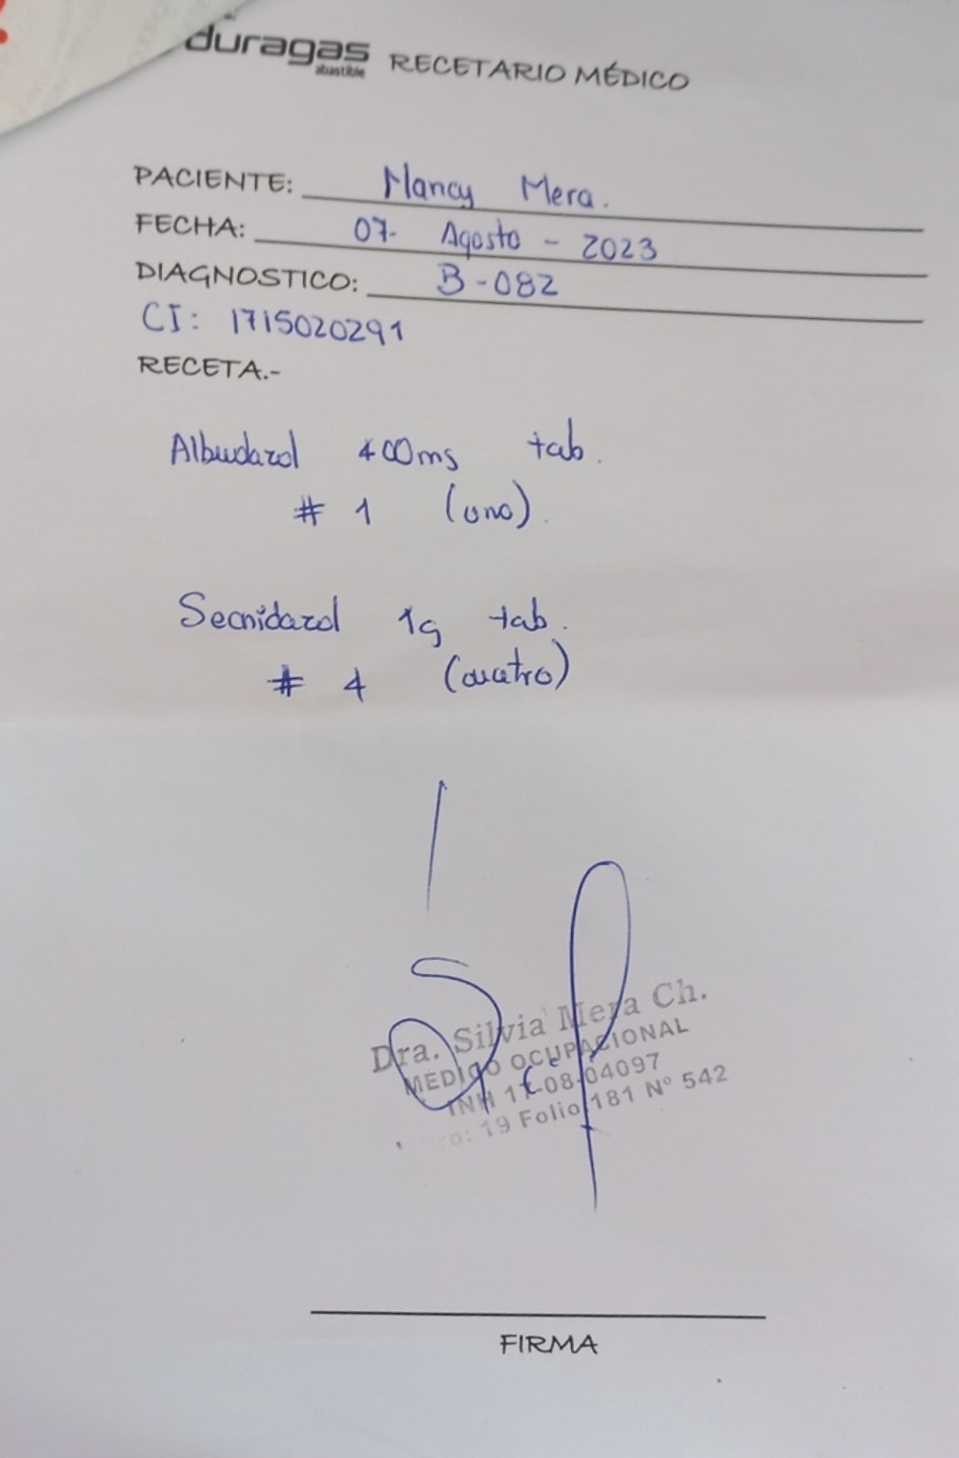 duragas
abastible
RECETARIO MÉDICO
PACIENTE: Nancy Mera.
FECHA: 07- Agosto - 2023
DIAGNOSTICO: B-082
CI: 1715020291
RECETA.-
Albendazol 400mg tab.
# 1 (uno).
Secnidazol 1g tab.
# 4 (cuatro)
Dra. Silvia Mera Ch.
MEDICO OCUPACIONAL
INH 17-08-04097
19 Folio 181 N° 542
FIRMA